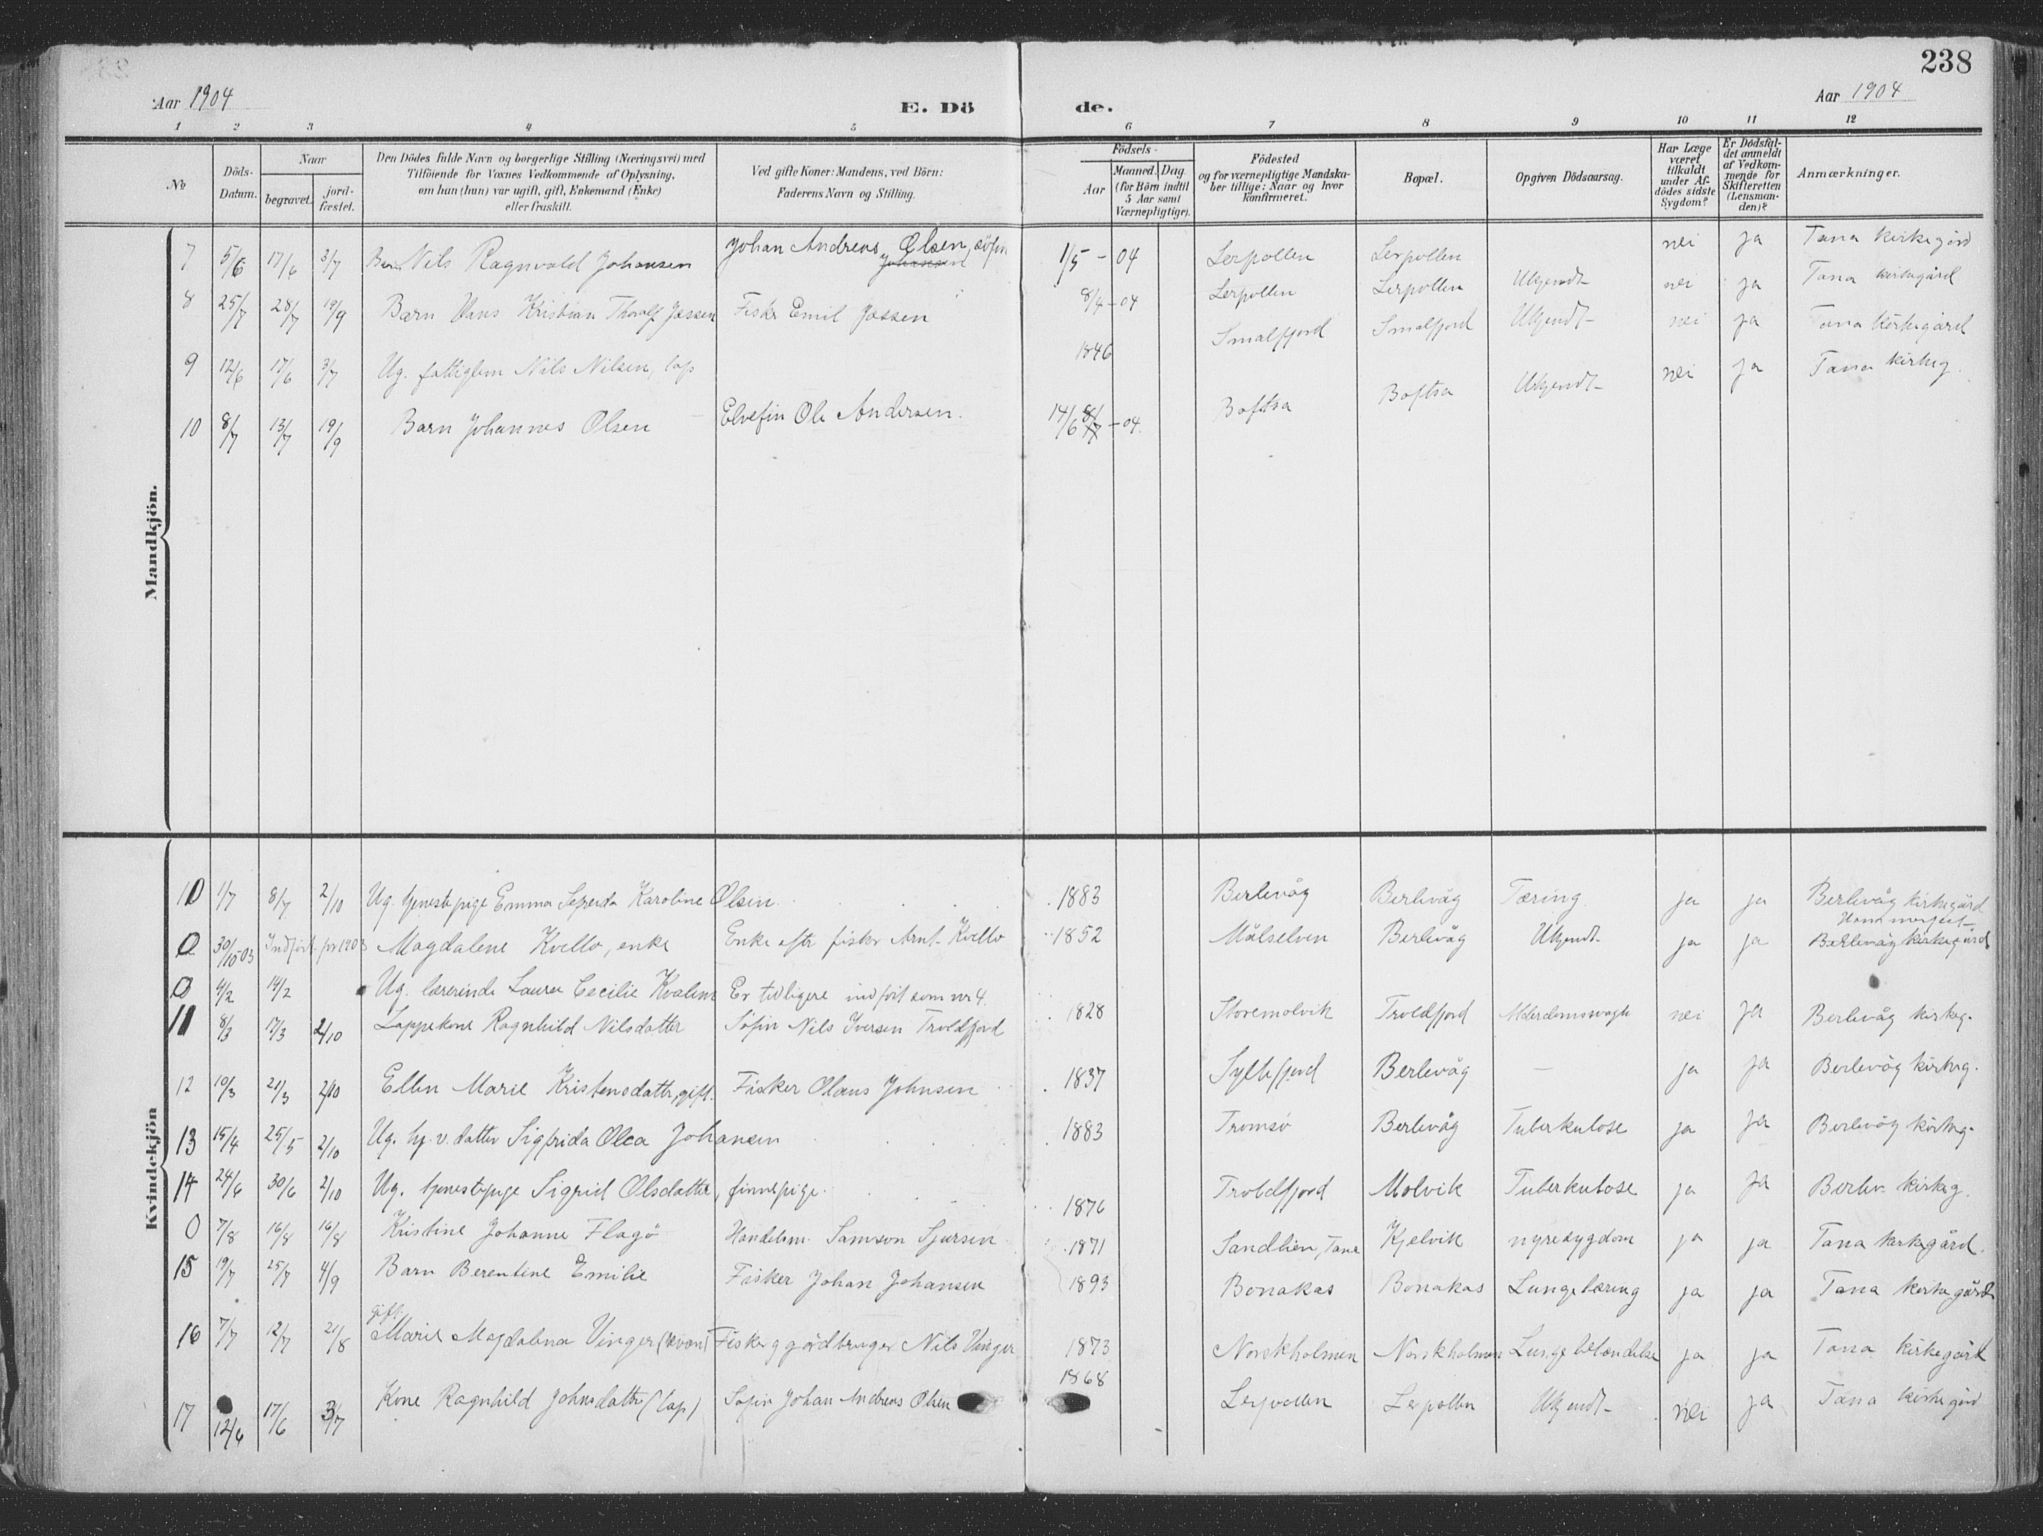 238
Aar 1904 E. Dö de. Aar 1904
1 2 3 4 5 6 7 8 9 10 11 12
No
Döds-Datum.
Naar
begravet.
jord-fæstet.
Den Dödes fulde Navn og borgerlige Stilling (Næringsvei) med
Tilföiende for Voxnes Vedkommende af Oplysning,
om han (hun) var ugift, gift, Enkemand (Enke)
eller fraskilt.
Ved gifte Koner: Mandens, ved Börn:
Faderens Navn og Stilling.
Födsels-
Aar
Maaned. Dag.
(for Börn indtil
5 Aar samt
Værnepligtige).
Födested
og for værnepligtige Mandska-
ber tillige: Naar og hvor
konfirmeret.
Bopæl.
Opgiven Dödsaarsag.
Har Læge
været
tilkaldt
under Af-
dödes sidste
Sygdom?
Er Dödsfal-
det anmeldt
af Vedkom-
mende for
Skifteretten
(Lensman-
den)?
Anmærkninger.
Mandkjön.
7 5/6 17/6 3/7 Barn Nils Ragnvald Johansen Johan Andreas Olsen, söfin Johansen 1/5 - 04 Lerpollen Lerpollen nei ja Tana kirkegård
8 25/7 28/7 19/9 Barn Hans Kristian Thoralf Jessen Fisker Emil Jessen 8/4 - 04 Lerpollen Lerpollen Ukjendt nei ja Tana kirkegård
9 12/6 17/6 3/7 Ug. fattiglem Nils Nilsen, lap 1846 Smalfjord Smalfjord Ukjendt nei ja Tana kirkegård
10 8/7 13/7 19/9 Barn Johannes Olsen Elvefin Ole Andersen. 14/6 8/7 - 04. Boftsa Boftsa Ukjendt nei ja Tana kirkeg.
Kvindekjön
10 1/7 8/7 2/10 Ug. tjenestepige Emma Karoline Olsen 1883 Berlevåg Berlevåg Tæring ja ja Berlevåg kirkegård
0 30/10 03 Indfört for 1903 Magdalene Kvello, enke Enke eftr fisker Arnt Kvello 1852 Målselven Berlevåg Ukjendt ja ja Berlevåg kirkegård
0 4/2 14/2 Ug. lærerinde Laura Cecilie Er tidligere indfört som nr 4.
11 8/3 17/3 2/10 Lappekone Ragnhild Nilsdatter Söfin Nils Iversen Troldfjord 1828 Storemolvik Troldfjord Alderdomssvagh nei ja Berlevåg kirkeg.
12 10/3 21/3 2/10 Ellen Marie Kristensdatter, gift. Fisker Olaus Johnsen 1837 Syltefjord Berlevåg - ja ja Berlevåg kirkeg.
13 15/4 25/5 2/10 Ug. hj. v. datter Sigfrida Olea Johansen 1883 Tromsö Berlevåg Tuberkulose ja ja Berlevåg kirkeg.
14 24/6 30/6 2/10 Ug. tjenestepige Sigrid Olsdatter, finnepige. 1876 Troldfjord Molvik Tuberkulose ja ja Berlev. kirkeg.
0 7/8 16/8 16/8 Kristine Johanne Flagö Handelsm. Samson Sjursen 1871 Sandlien, Tana Kjelvik nyresygdom ja ja Tana kirkegård.
15 19/7 25/7 4/9 Barn Berentine Emilie Fisker Johan Johansen 1893 Bonakas Bonakas Lungetæring ja ja Tana kirkegård
16 7/7 12/7 21/8 gift. Marie Magdalena Vinger (kvæn) Fisker g gårdbruger Nils Vinger 1873 Norskholmen Norskholmen Lungebetændelse ja ja Tana kirkegård
17 12/6 17/6 3/7 Kone Ragnhild Johnsdatter (lap) Söfin Johan Andreas Olsen 1868 Lerpollen Lerpollen Ukjendt nei ja Tana kirkegård